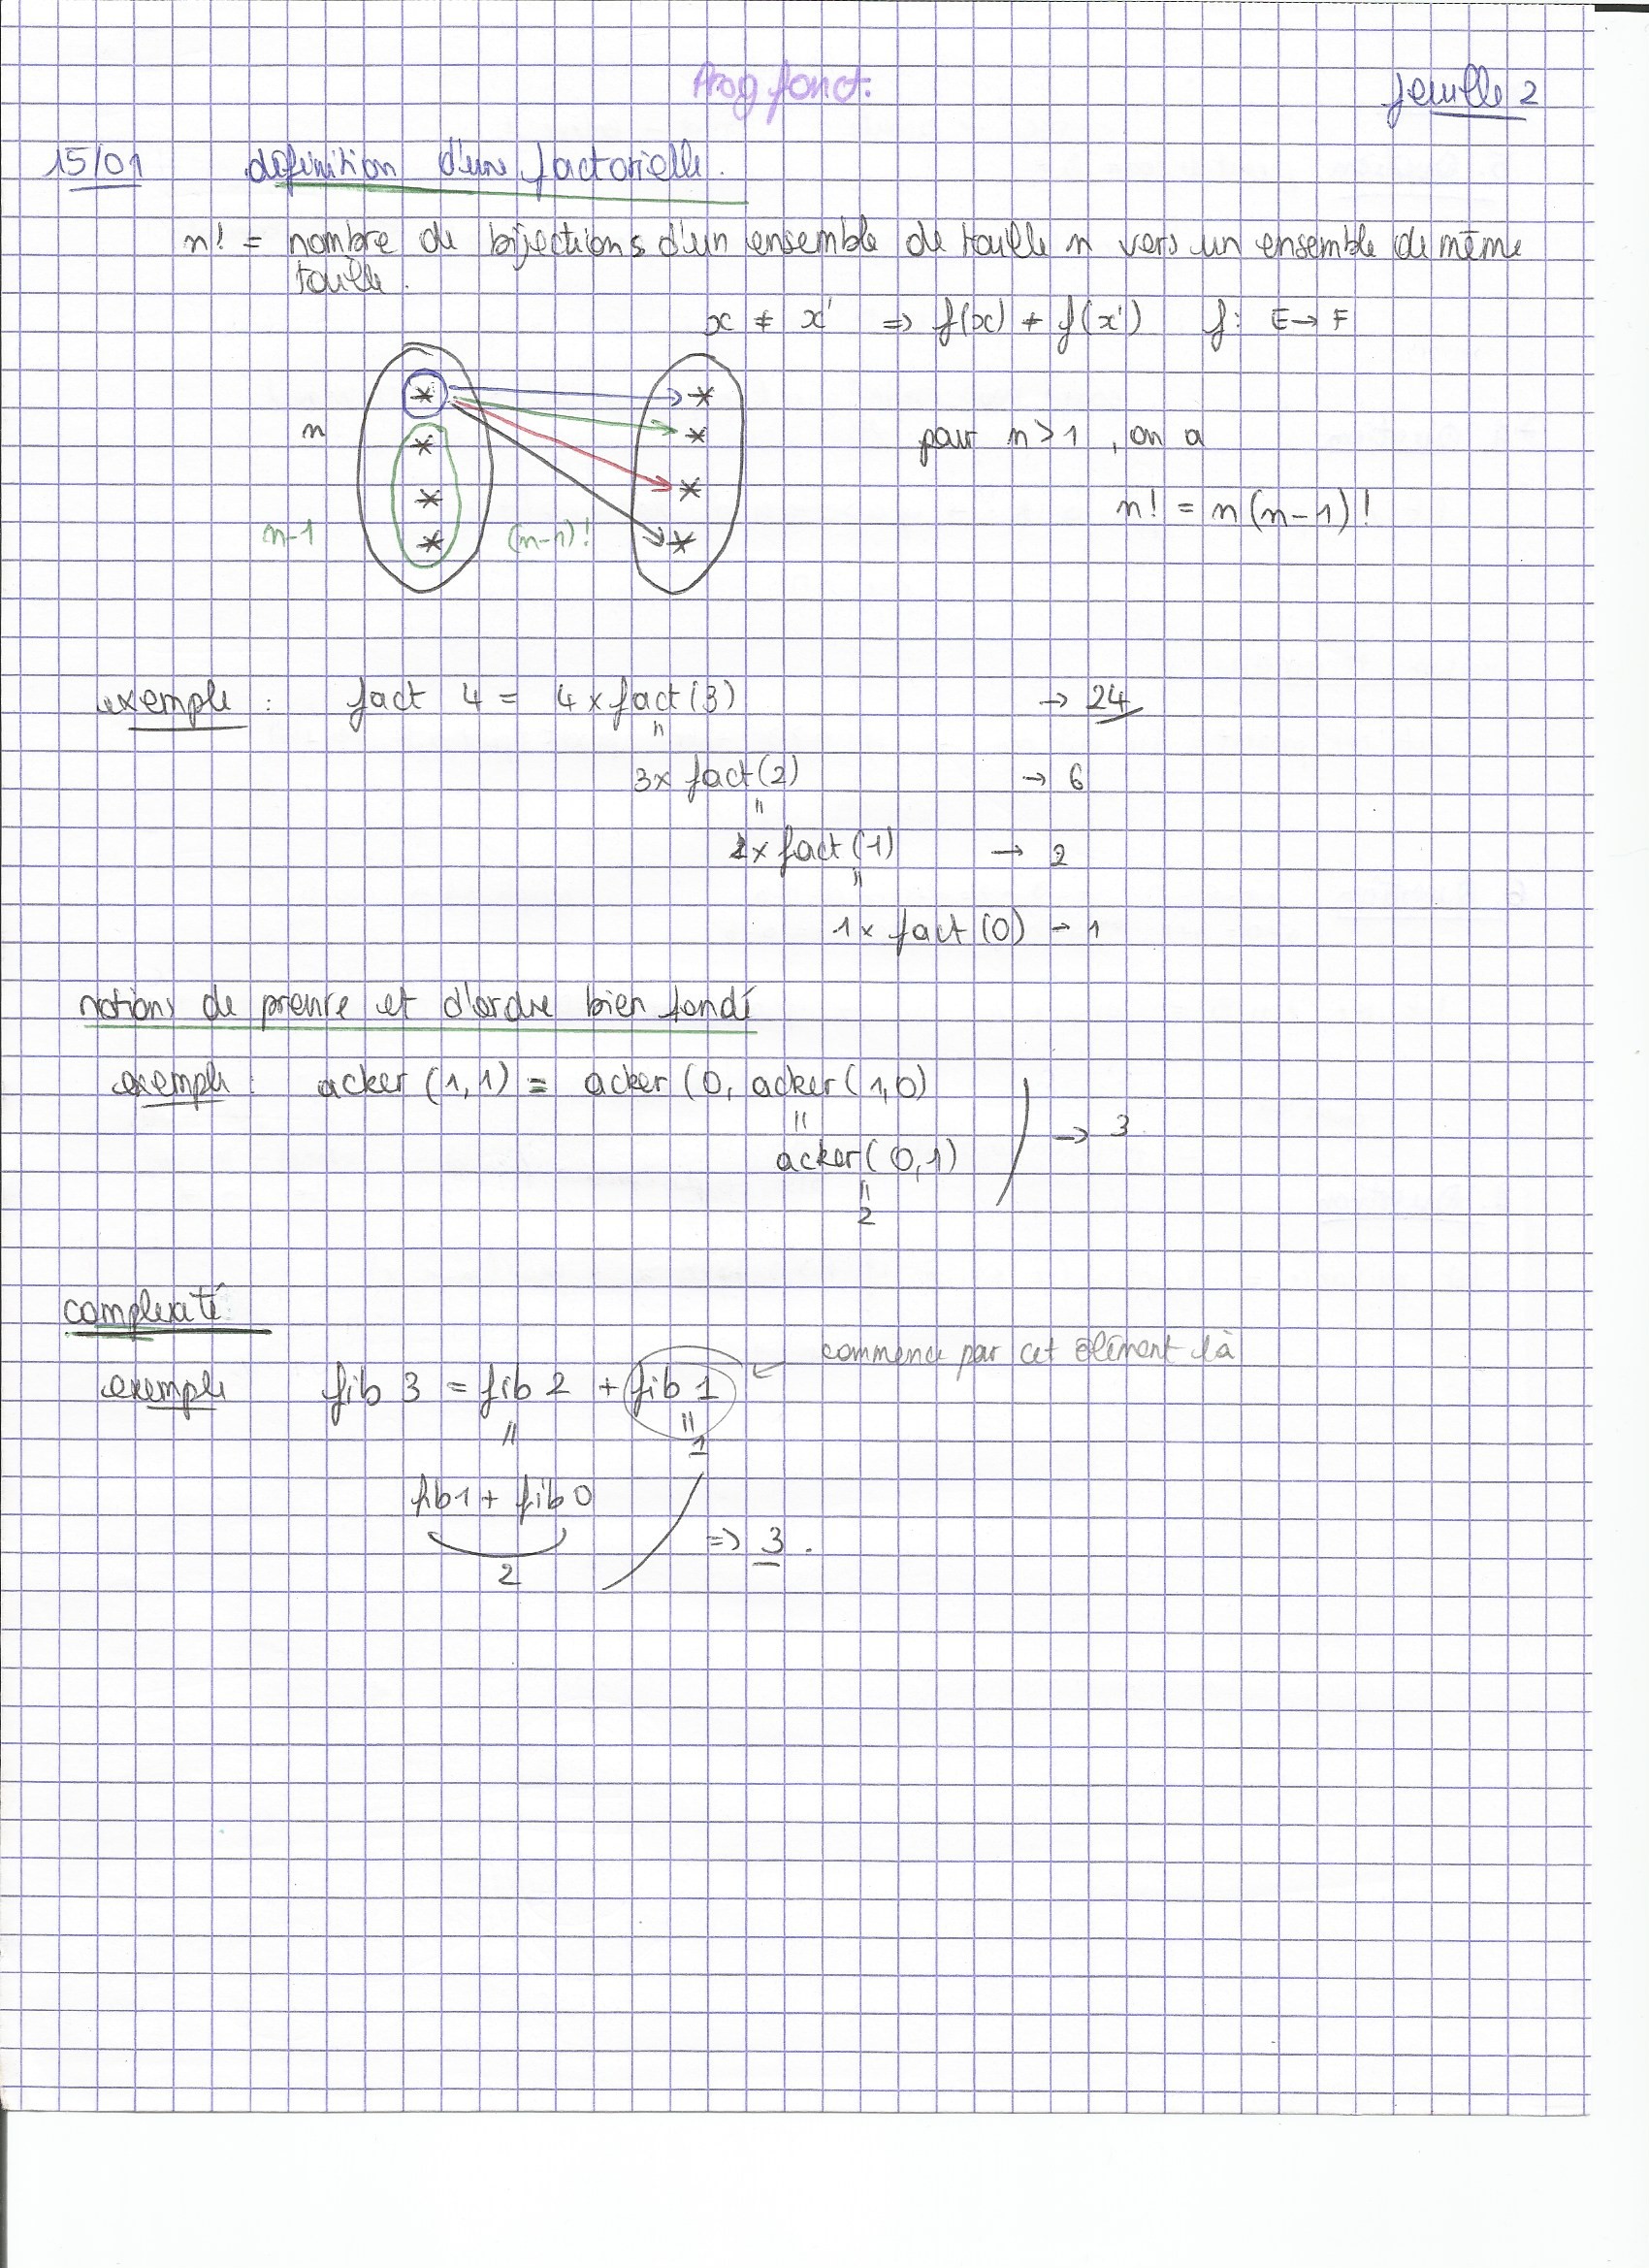 Prog fonct.
feuille 2
15/01 définition d'une factorielle.
n! = nombre de bijections d'un ensemble de taille n vers un ensemble de même
taille.
x ≠ x' => f(x) ≠ f(x') f: E → F
n
pour n > 1, on a
n! = n(n-1)!
n-1 (n-1)!
exemple : fact 4 = 4 x fact(3) → 24
"
3x fact(2) → 6
"
2x fact(1) → 2
"
1x fact(0) - 1
notions de preuve et d'ordre bien fondé
exemple : acker (1,1) = acker (0, acker(1,0)
"
acker(0,1)
→ 3
"
2
complexité
commence par cet élément là
exemple fib 3 = fib 2 + fib 1
" "
1
fib1 + fib 0
=> 3.
2